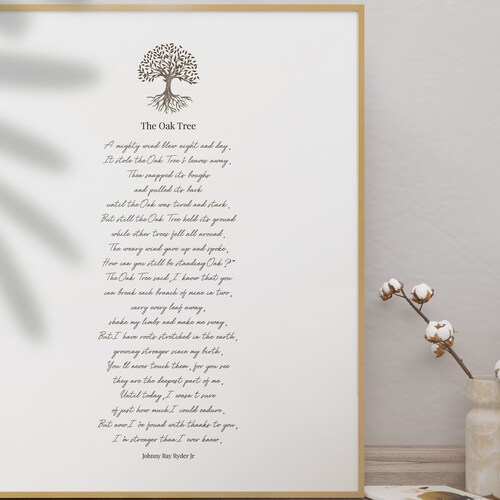 The Oak Tree
A mighty wind blew night and day,
It stole the Oak Tree's leaves away,
Then snapped its boughs
and pulled its bark
until the Oak was tired and stark.
But still the Oak Tree held its ground
while other trees fell all around.
The weary wind gave up and spoke.
How can you still be standing Oak?"
The Oak Tree said, I know that you
can break each branch of mine in two,
carry every leaf away,
shake my limbs and make me sway.
But I have roots stretched in the earth,
growing stronger since my birth.
You'll never touch them, for you see
they are the deepest part of me.
Until today, I wasn't sure
of just how much I could endure.
But now I've found with thanks to you,
I'm stronger than I ever knew.
Johnny Ray Ryder Jr